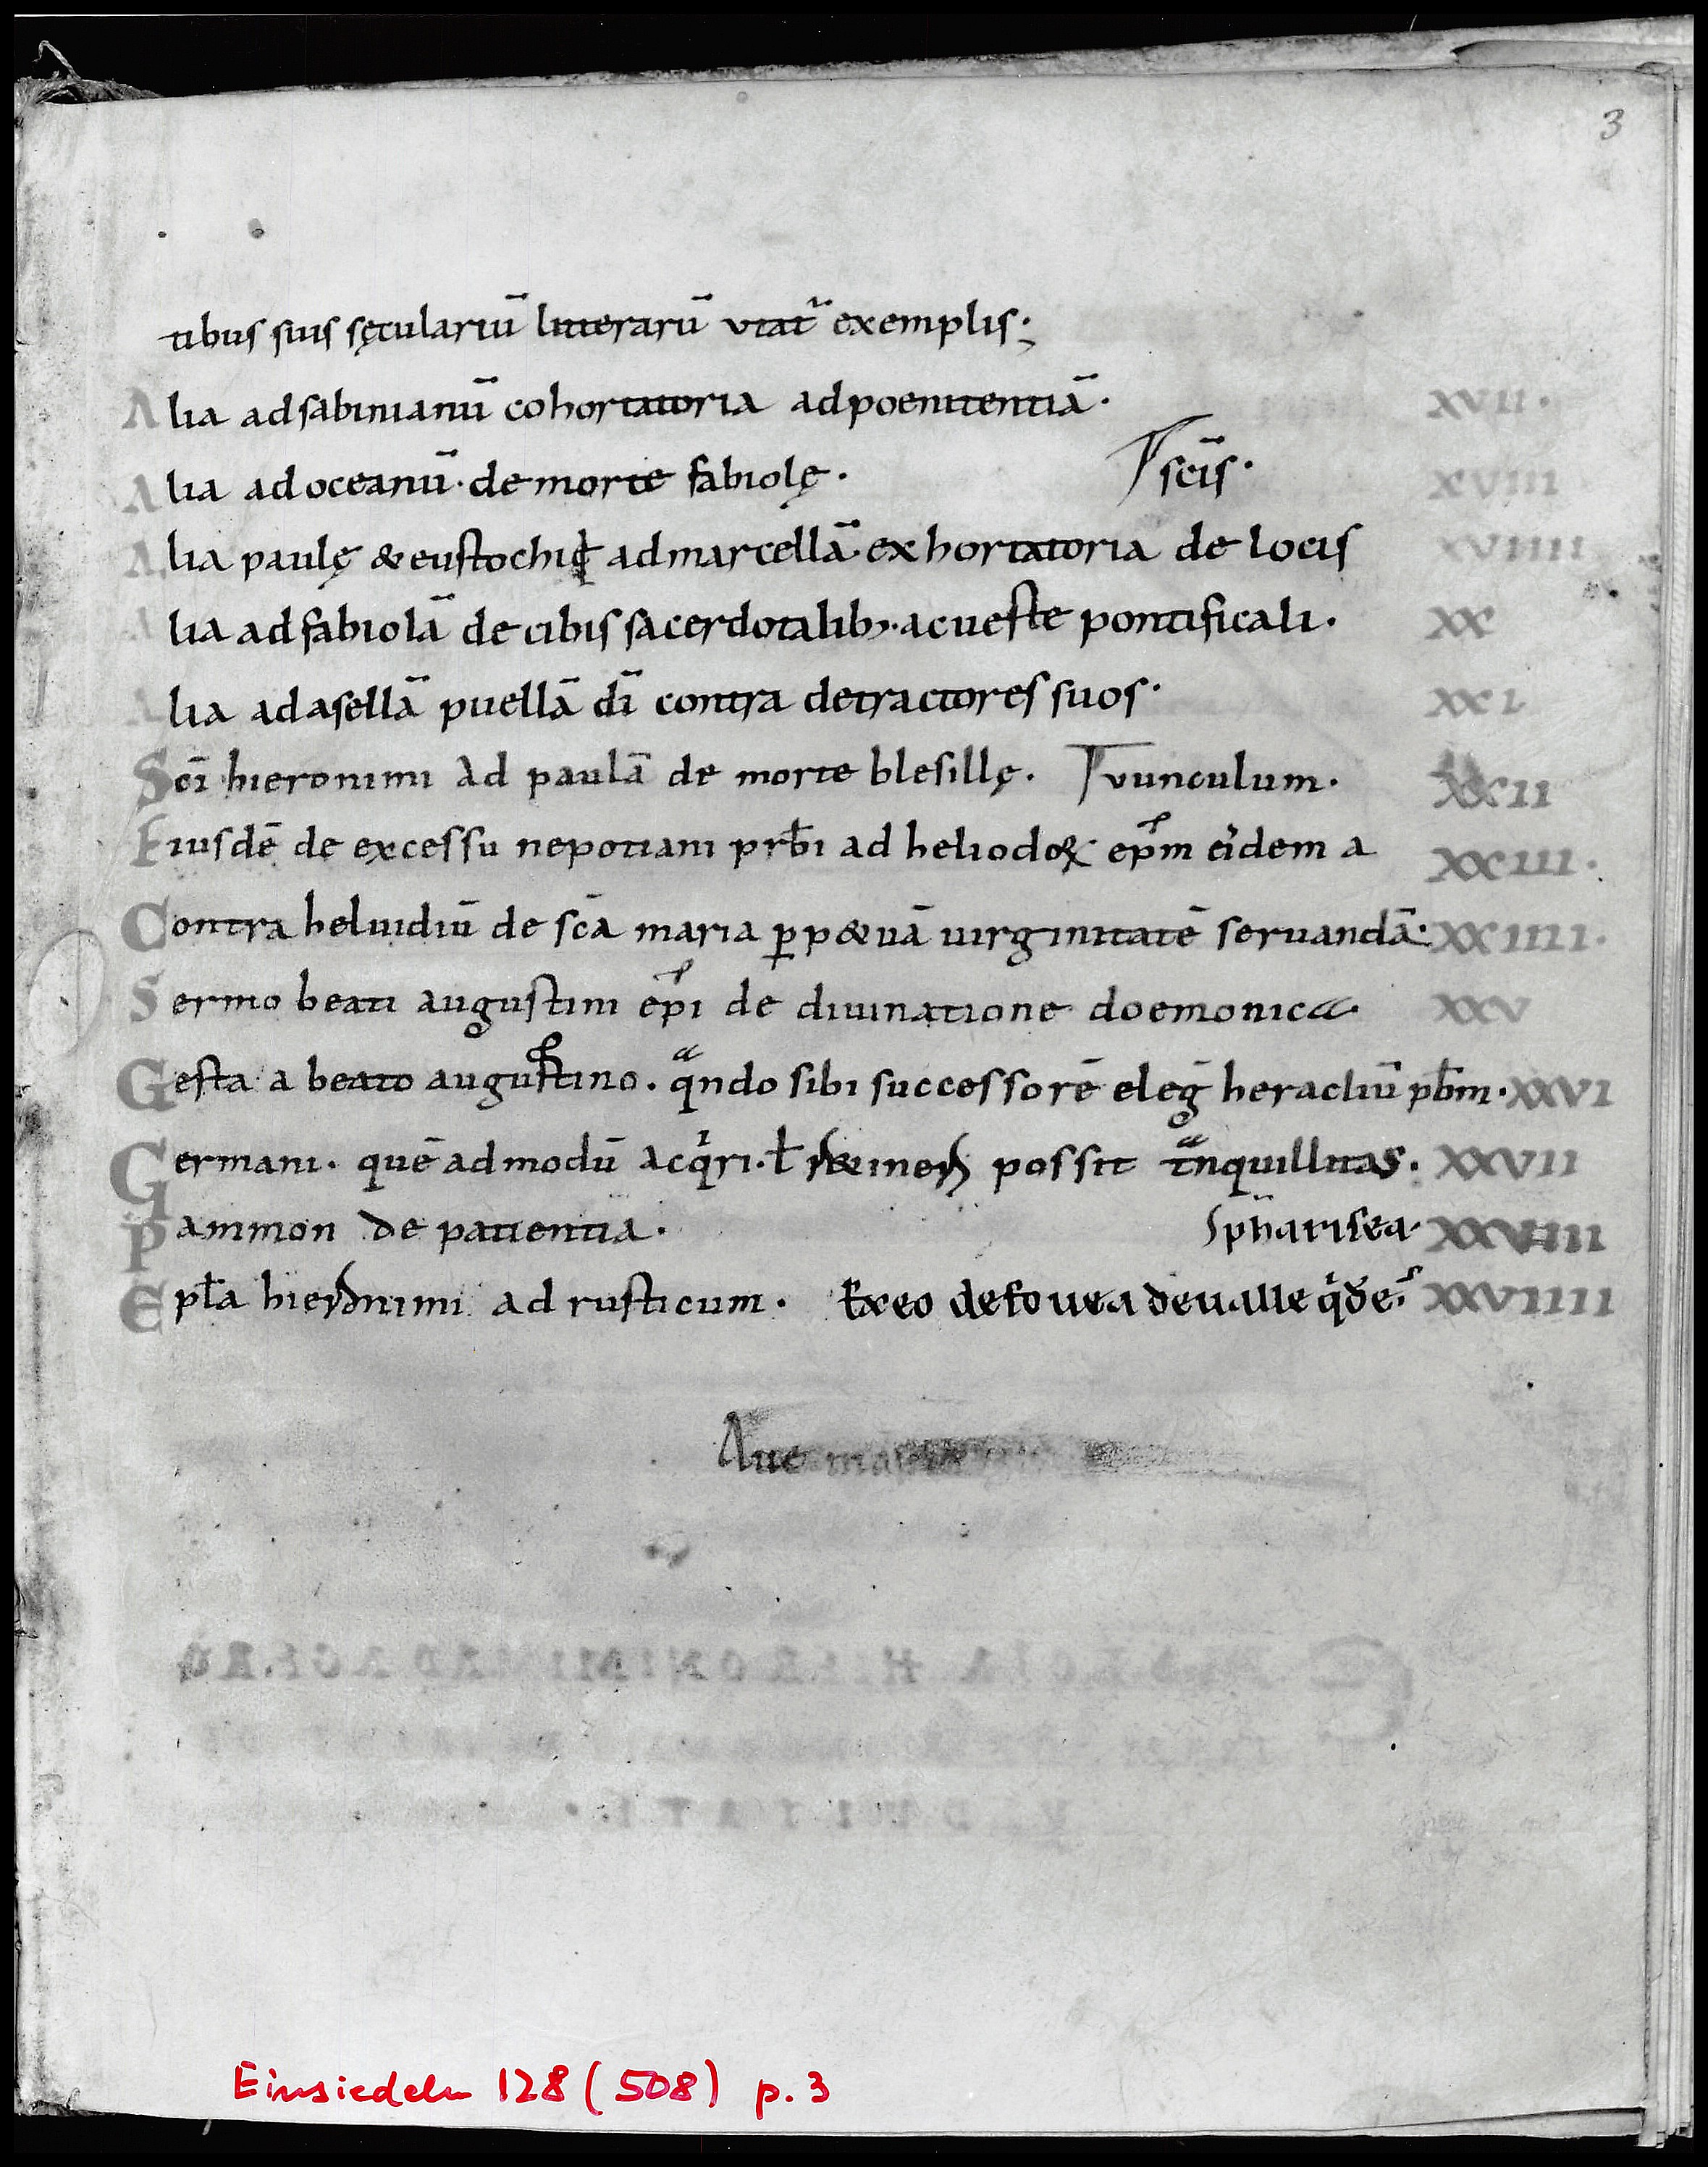 3
tibus suis sęculariū litterarū vtat᷑ exemplis;
Alia ad sabinianū cohortatoria ad poenitentiā· XVII·
Alia ad oceanū· de morte fabiolę· sc̄is· XVIII
Alia paulę & eustochię ad marcellā· exhortatoria de locis XVIIII
Alia ad fabiolā de cibis sacerdotalib;· ac ueste pontificali· XX
Alia ad asellā puellā dī contra detractores suos· XXI
Sc̄i hieronimi ad paulā de morte blesillę· vunculum· XXII
Eiusdē de excessu nepotiani prb̄i ad heliodoꝝ ep̄m eidem a XXIII·
Contra heluidiū de sc̄a maria ꝑp&uā uirginitatē seruandā· XXIIII·
Sermo beati augustini ep̄i de diuinatione doemonica· XXV
Gesta a beato augustino· qͣndo sibi successorē eleḡ heracliū pb̄m· XXVI
Germani· quē ad modū acqͥri· ł r&ineri possit tͣnquillitas· XXVII
Pammon de patientia· pharisea· XXVIII
Epła hieronimi ad rusticum· Exeo de fouea de ualle qͥde XXVIIII
Aue maria
Einsiedeln 128 (508) p. 3